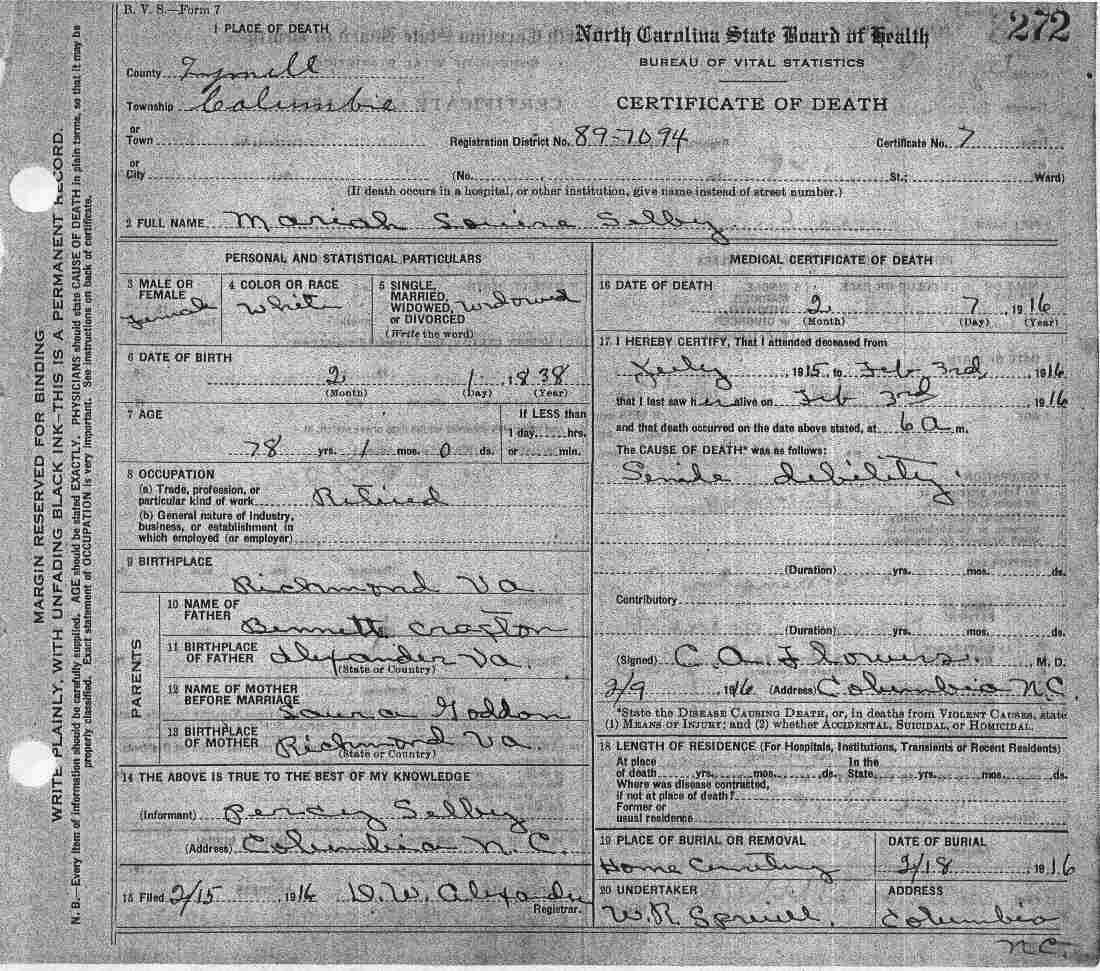 B. V. S.—Form 7
272
North Carolina State Board of Health
BUREAU OF VITAL STATISTICS
CERTIFICATE OF DEATH
1 PLACE OF DEATH
County Tyrrell
Township Columbia
or
Town
Registration District No. 89-7094 Certificate No. 7
or
City (No. St.; Ward)
(If death occurs in a hospital, or other institution, give name instead of street number.)
2 FULL NAME Mariah Louisa Selby
PERSONAL AND STATISTICAL PARTICULARS
3 MALE OR FEMALE female
4 COLOR OR RACE White
5 SINGLE, MARRIED, WIDOWED, or DIVORCED (Write the word) Widowed
6 DATE OF BIRTH
2 1 1838
(Month) (Day) (Year)
7 AGE
If LESS than
1 day......hrs.
78 yrs. 1 mos. 0 ds. or ...... min.
8 OCCUPATION
(a) Trade, profession, or
particular kind of work Retired
(b) General nature of Industry,
business, or establishment in
which employed (or employer)
9 BIRTHPLACE
Richmond Va
PARENTS
10 NAME OF FATHER
Bennett
11 BIRTHPLACE OF FATHER Alexander Va.
(State or Country)
12 NAME OF MOTHER BEFORE MARRIAGE
Laura Goddon
13 BIRTHPLACE OF MOTHER Richmond Va
(State or Country)
14 THE ABOVE IS TRUE TO THE BEST OF MY KNOWLEDGE
(Informant) Percey Selby
(Address) Columbia N.C.
15 Filed 2/15 1916 D. W. Alexander
Registrar.
MEDICAL CERTIFICATE OF DEATH
16 DATE OF DEATH
2 7 1916
(Month) (Day) (Year)
17 I HEREBY CERTIFY, That I attended deceased from
July 1915 to Feb 3rd 1916
that I last saw her alive on Feb 3rd 1916
and that death occurred on the date above stated, at 6 a m.
The CAUSE OF DEATH* was as follows:
Senile debility.
(Duration) yrs. mos. ds.
Contributory
(Duration) yrs. mos. ds.
(Signed) C. A. Flowers. M. D.
2/9 1916 (Address) Columbia N.C.
*State the DISEASE CAUSING DEATH, or, in deaths from VIOLENT CAUSES, state
(1) MEANS OF INJURY; and (2) whether ACCIDENTAL, SUICIDAL, or HOMICIDAL.
18 LENGTH OF RESIDENCE (For Hospitals, Institutions, Transients or Recent Residents)
At place In the
of death yrs. mos. ds. State yrs. mos. ds.
Where was disease contracted,
if not at place of death?
Former or
usual residence
19 PLACE OF BURIAL OR REMOVAL
Home Cemetery
DATE OF BURIAL
2/18 1916
20 UNDERTAKER
W. R. Spruill.
ADDRESS
Columbia
N.C.
MARGIN RESERVED FOR BINDING
WRITE PLAINLY, WITH UNFADING BLACK INK—THIS IS A PERMANENT RECORD.
N. B.—Every item of information should be carefully supplied. AGE should be stated EXACTLY. PHYSICIANS should state CAUSE OF DEATH in plain terms, so that it may be
properly classified. Exact statement of OCCUPATION is very important. See instructions on back of certificate.